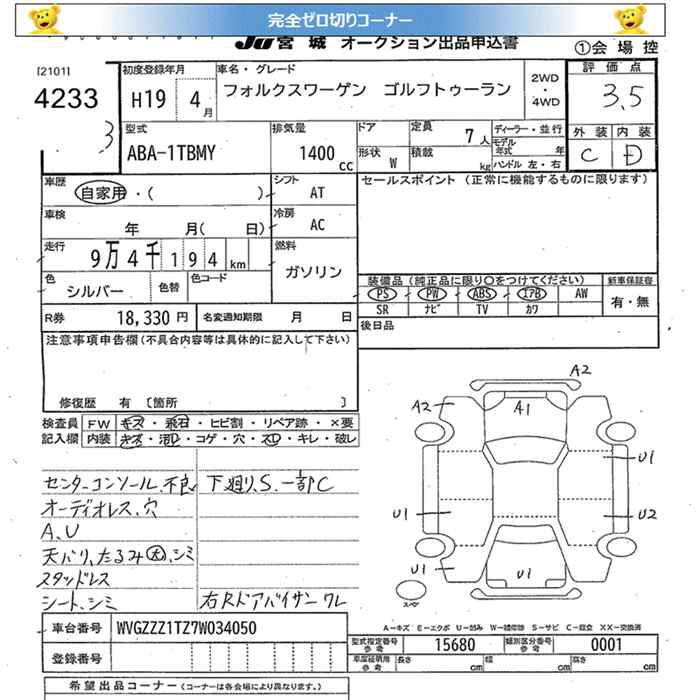 完全ゼロ切りコーナー
JU宮城 オークション出品申込書
①会場控
[2101]
4233
3
初度登録年月
H19 4月
車名・グレード
フォルクスワーゲン ゴルフトゥーラン
2WD・4WD
評価点
3.5
外装 内装
C D
型式
ABA-1TBMY
排気量
1400 cc
ドア
定員 7人
形状 W
積載 kg
ディーラー・並行
モデル年式 年
ハンドル 左・右
車歴
自家用・( )
シフト
AT
セールスポイント (正常に機能するものに限ります)
車検
年 月( 日)
冷房
AC
走行
9万4千194km
燃料
ガソリン
色
シルバー
色替
色コード
装備品 (純正品に限り○をつけてください)
新車保証書
PS PW ABS エアB AW
有・無
SR ナビ TV カワ
R券 18,330円
名変通知期限 月 日
後日品
注意事項申告欄(不具合内容等は具体的に記入して下さい)
修復歴 有 〔箇所 〕
検査員記入欄
FW キズ・飛石・ヒビ割・リペア跡・×要
内装 キズ・汚レ・コゲ・穴・スレ・キレ・破レ
センターコンソール、不良
下廻り、S、一部C
オーディオレス、穴
A、U
天バリ、たるみ大、シミ
スタッドレス
シート、シミ
右Rドアバイザーワレ
A2
A2
A1
U1
U1
U2
U1
U1
スペア
A-キズ E-エクボ U-凹み W-補修跡 S-サビ C-腐食 XX-交換済
車台番号 WVGZZZ1TZ7W034050
型式指定番号 参考 15680
類別区分番号 参考 0001
登録番号
車庫証明用 参考
長さ cm
幅 cm
高さ cm
希望出品コーナー (コーナーは各会場により異なります。)